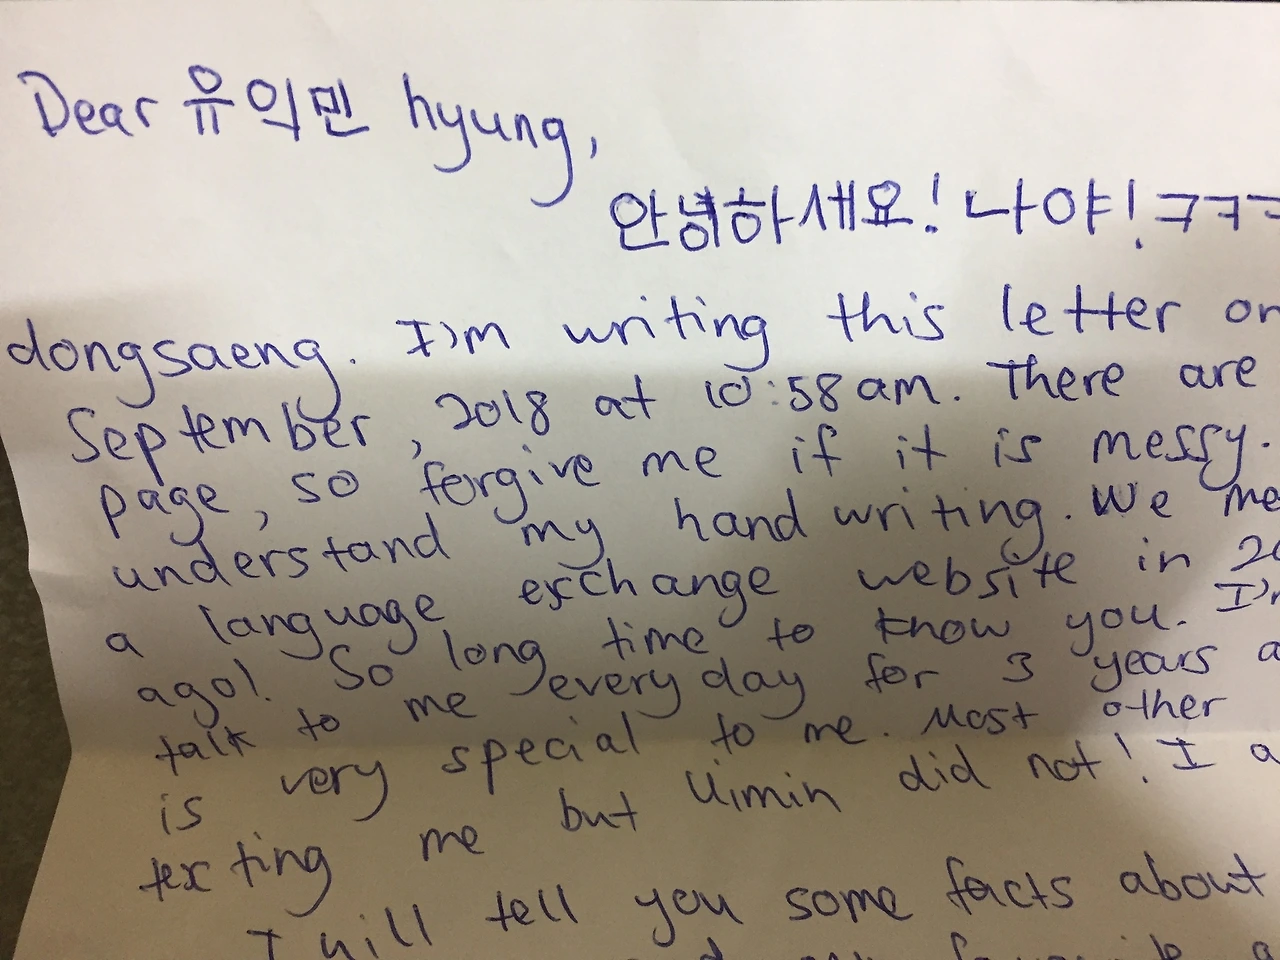 Dear 유의민 hyung,
안녕하세요! 나야! ㅋㅋㅋ
dongsaeng. I'm writing this letter on
September, 2018 at 10:58am. There are
page, so forgive me if it is messy.
understand my handwriting. We me
a language exchange website in 20
ago!. So long time to know you. I'm
talk to me everyday for 3 years a
is very special to me. Most other
texting me but Uimin did not! I a
I will tell you some facts about